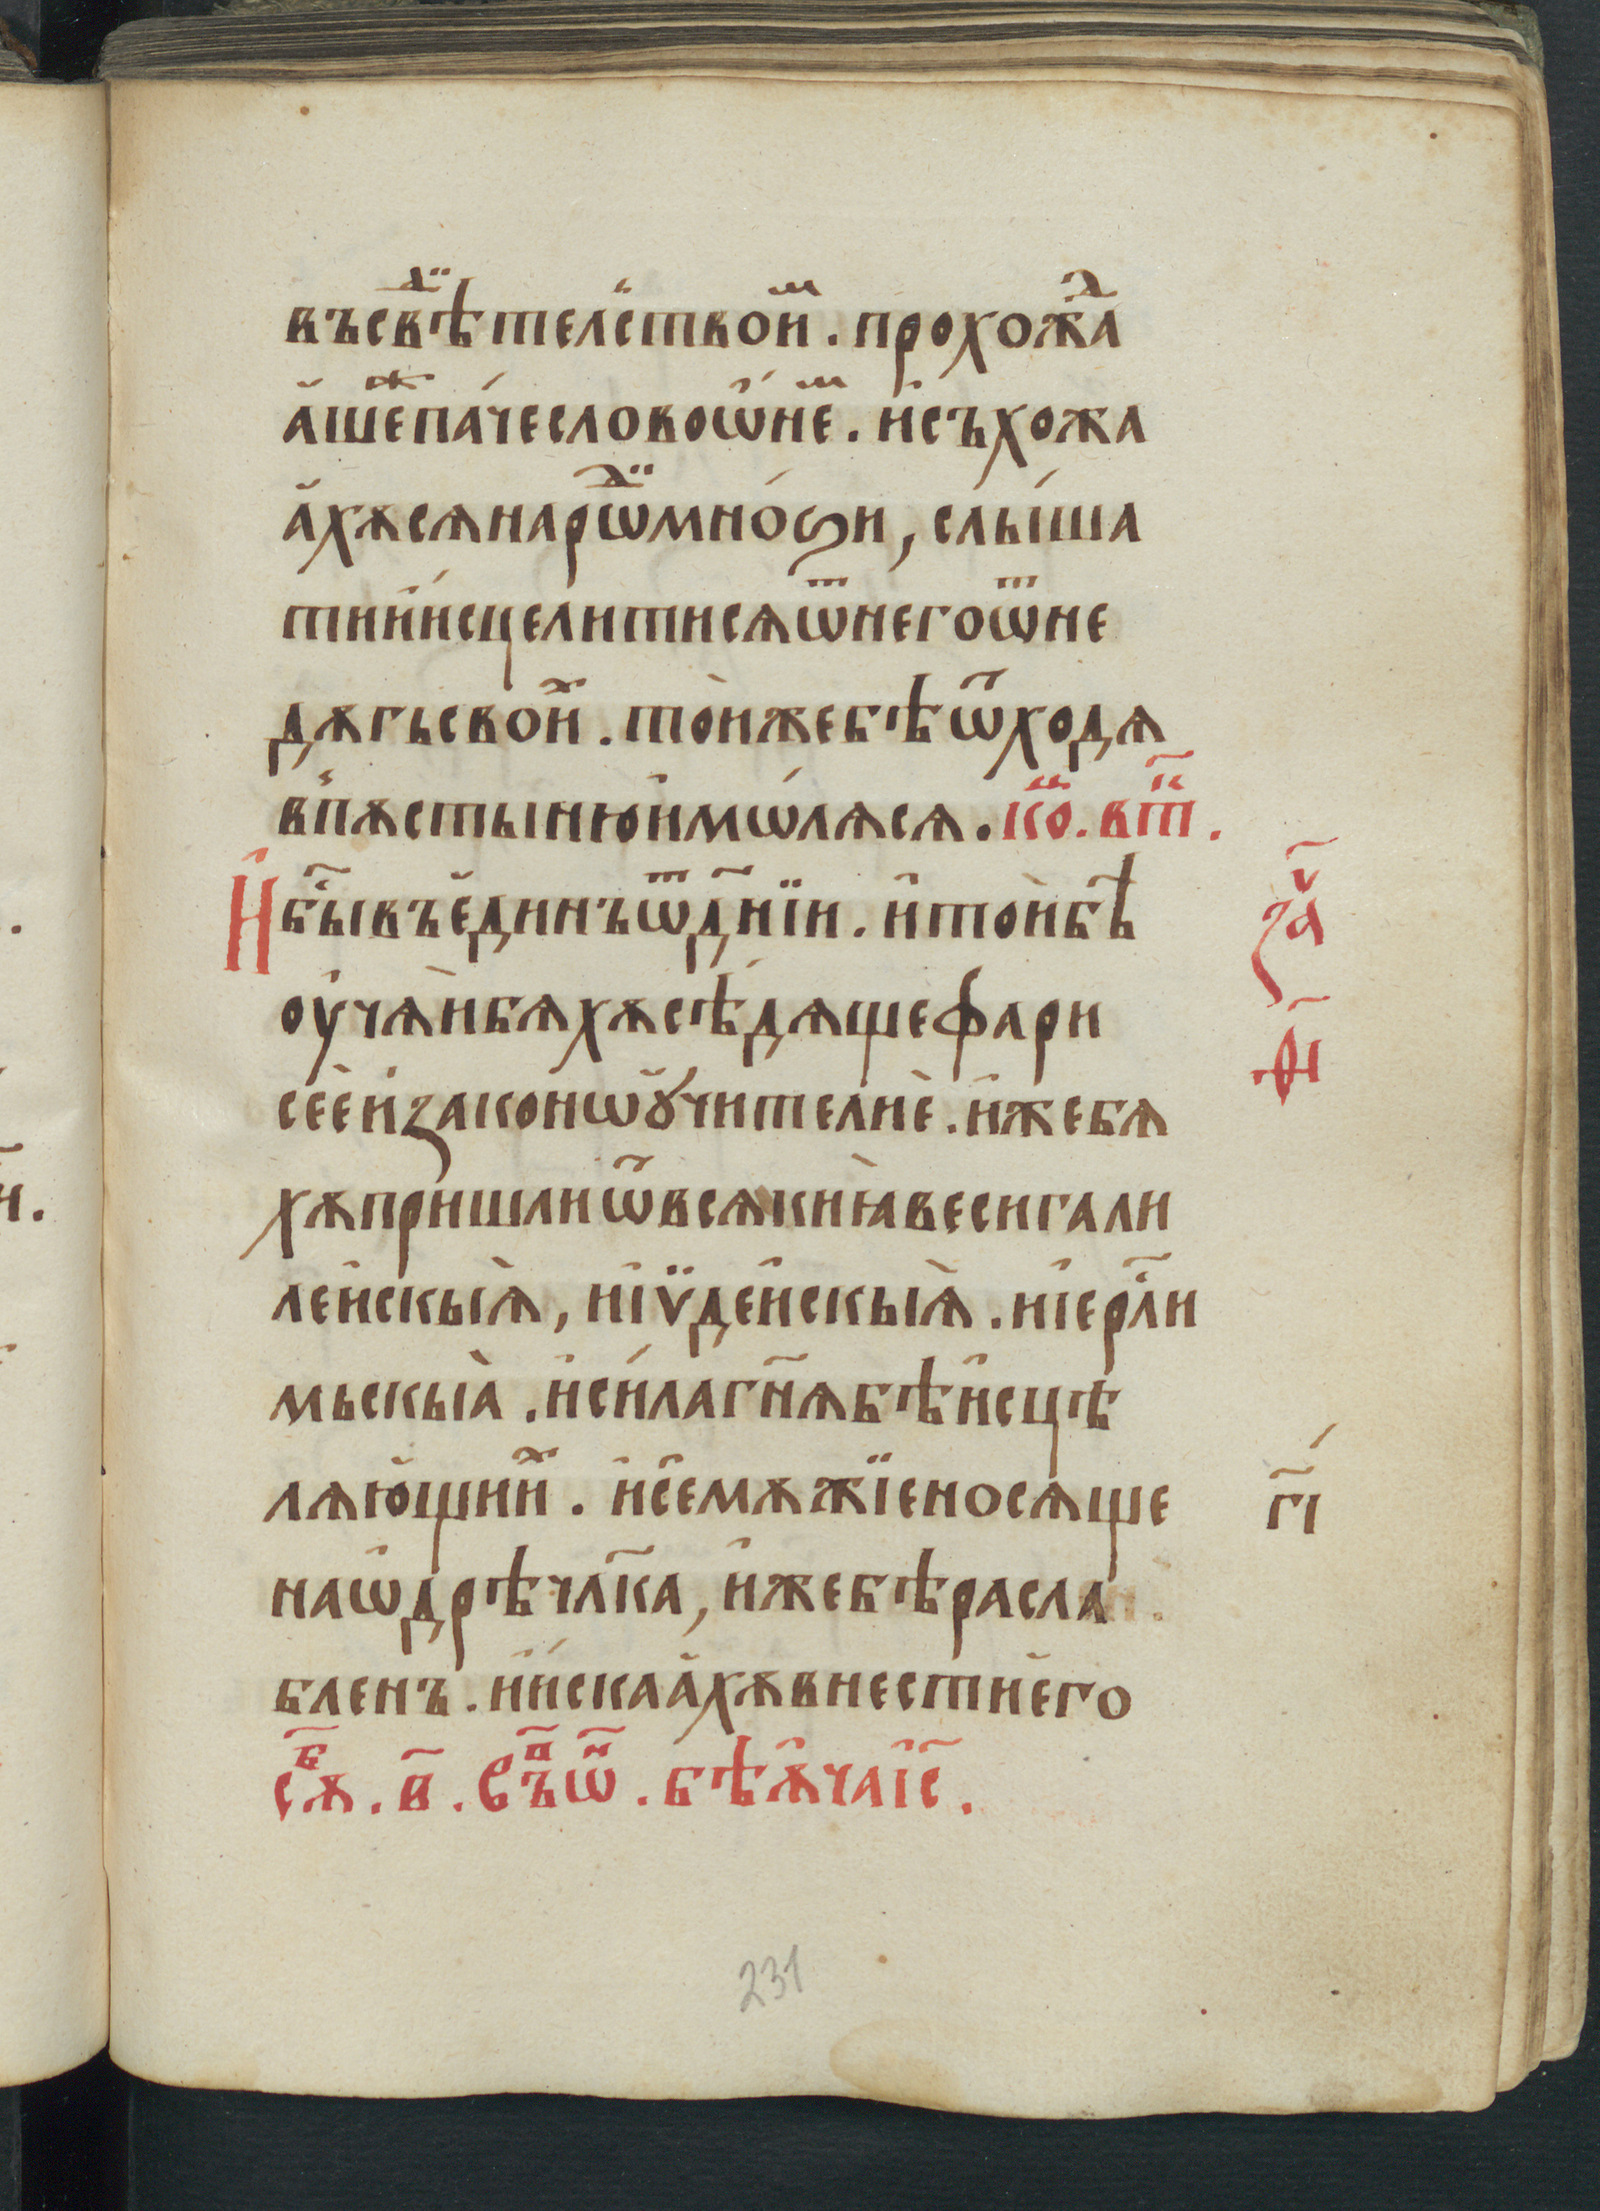 въсвѣⷣ҇телс҇твоиⷨ . прохожⷣа
а҆шеⷤпа́чесловоѿнеⷨ . и҆съхожа
а҆хѫсѧнарѡⷣмно́ѕи, слы́ша
тии҆и҆сцелитисѧѿнегоѿне
дѫгьсвоиⷯ . то̀ижебѣѿходѧ
вп҆ѫстынюи҆мѡ́лѧсѧ . коⷰ҇ . втⷪ҇ .
И҆ бы҃въе҆динъѿдн҃їи . и҆то̀ибѣ
ѹ҆чѧ̀ибѧхѫсѣ́дѧщефари
се҆ѐиꙁаконѡꙋ҆чителиѐ . и҆жебѧ
хѫпришлиѿвсѧкиꙗ̀весигали
ле҆искыѧ̀, иі҆ѵ̈де҆искыѧ̀ . иі҆ерⷭ҇ли
мьскыа̀ . и҆си́лагн҃ѧбѣи҆сцѣ
лѧю҆щииⷯ . и҆се҆мѫжїеносѧще
наѡ҆дрѣчл҃ка, и҆жебѣрасла
бленъ . ии҆скаа҆хѫвнестие҆го
сѫⷠ҇ . в҃ . Е҆ⷡъⷫ҇ѡⷩ҇ . бѣꙗ҆чаі҆с҃ .
ꙁаⷱ҇
ѳ҃і
г҃і
231